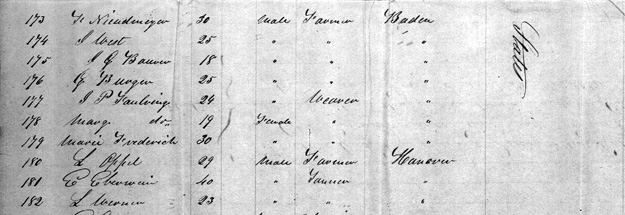 173 F Niedmeyer 30 Male Farmer Baden
174 S West 25 " " "
175 S G Bauer 18 " " "
176 G Burger 25 " " "
177 S P 24 " Weaver "
178 Marg do. 19 Female " "
179 Marie Frederich 30 " " "
180 L Oppel 29 Male Farmer Hanover
181 E Eberwein 40 " Tanner "
182 L Werner 23 " " "
States